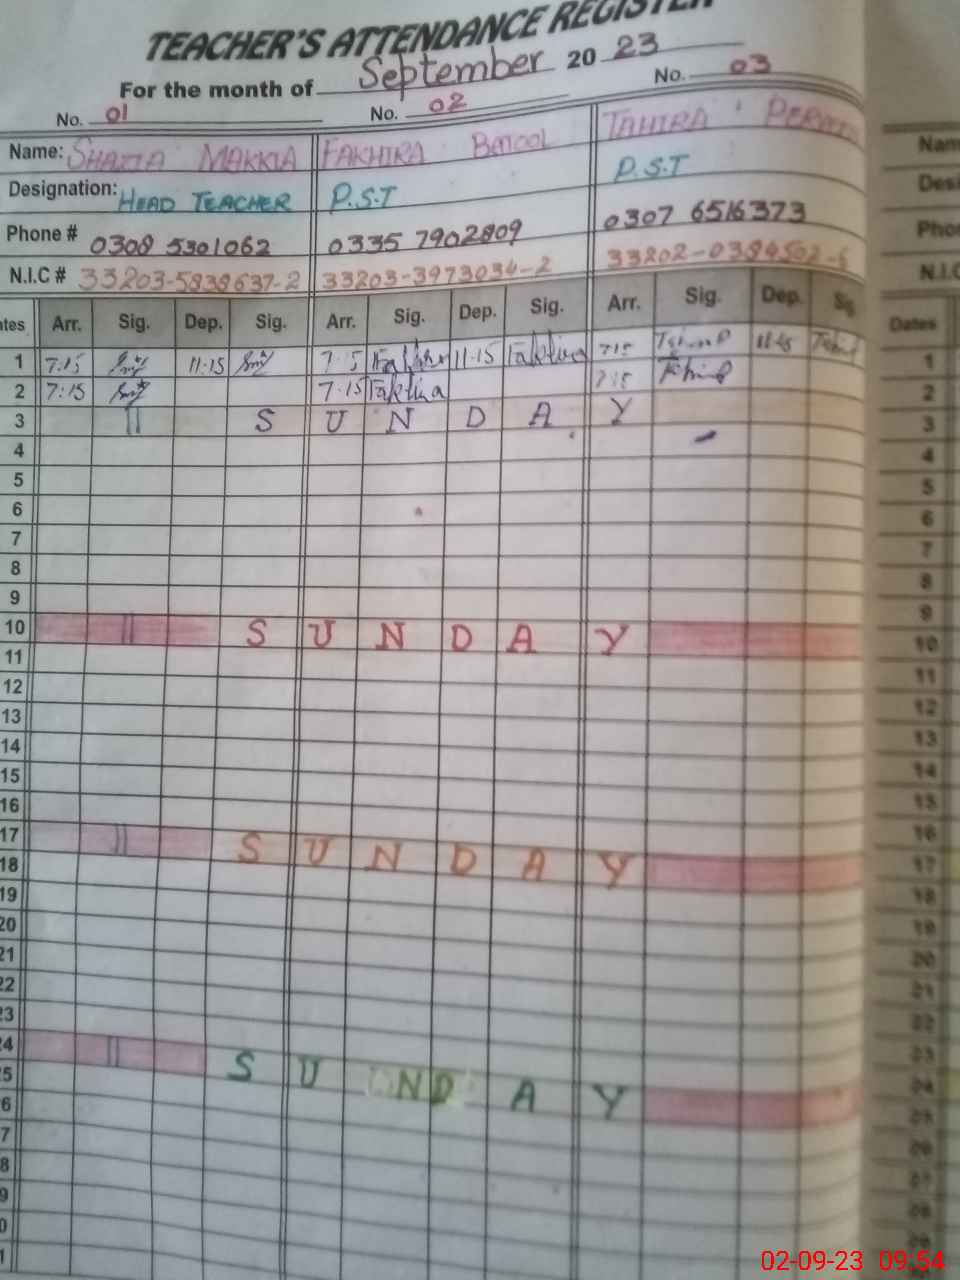 TEACHER'S ATTENDANCE REGISTER
For the month of September 20 23
No. 01 No. 02 No. 03
Name: SHAZIA MAKKIA FAKHIRA BATOOL TAHIRA
Designation: HEAD TEACHER P.S.T P.S.T
Phone # 0308 5301062 0335 7902809 0307 6516373
N.I.C # 33203-5838637-2 33203-3973034-2 33202-0384502-6
Arr. Sig. Dep. Sig. Arr. Sig. Dep. Sig. Arr. Sig. Dep. Sig Dates
1 7:15 11:15 7:15 11-15 Fakhira 7:15 11:15 1
2 7:15 7:15 Fakhira 7:15 2
3 S U N D A Y 3
4 4
5 5
6 6
7 7
8 8
9 9
10 S U N D A Y 10
11 11
12 12
13 13
14 14
15 15
16 16
17 S U N D A Y 17
18 18
19 19
20 20
21 21
22 22
23 23
24 S U N D A Y 24
25 25
02-09-23 09:54